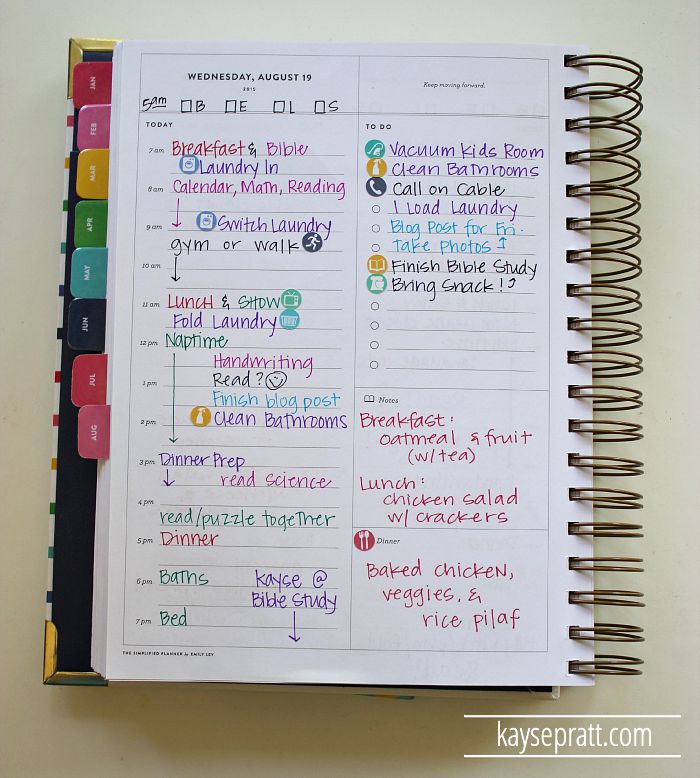 WEDNESDAY, AUGUST 19
2015
Keep moving forward.
5am □B □E □L □S
JAN
FEB
MAR
APR
MAY
JUN
JUL
AUG
TODAY
7 am Breakfast & Bible
Laundry In
8 am Calendar, Math, Reading
Switch Laundry
9 am
gym or walk
10 am
11 am Lunch & Show
Fold Laundry
12 pm Naptime
Handwriting
1 pm Read?
Finish blog post
2 pm Clean Bathrooms
3 pm Dinner Prep
read science
4 pm
read/puzzle together
5 pm Dinner
6 pm Baths kayse @
Bible Study
7 pm Bed
TO DO
Vacuum Kids Room
Clean Bathrooms
Call on Cable
1 Load Laundry
Blog Post for Fri.
Take Photos ↑
Finish Bible Study
Bring Snack! ↑
Notes
Breakfast:
oatmeal & fruit
(w/ tea)
Lunch:
chicken salad
w/ crackers
Dinner
Baked chicken,
veggies, &
rice pilaf
THE SIMPLIFIED PLANNER by EMILY LEY
kaysepratt.com